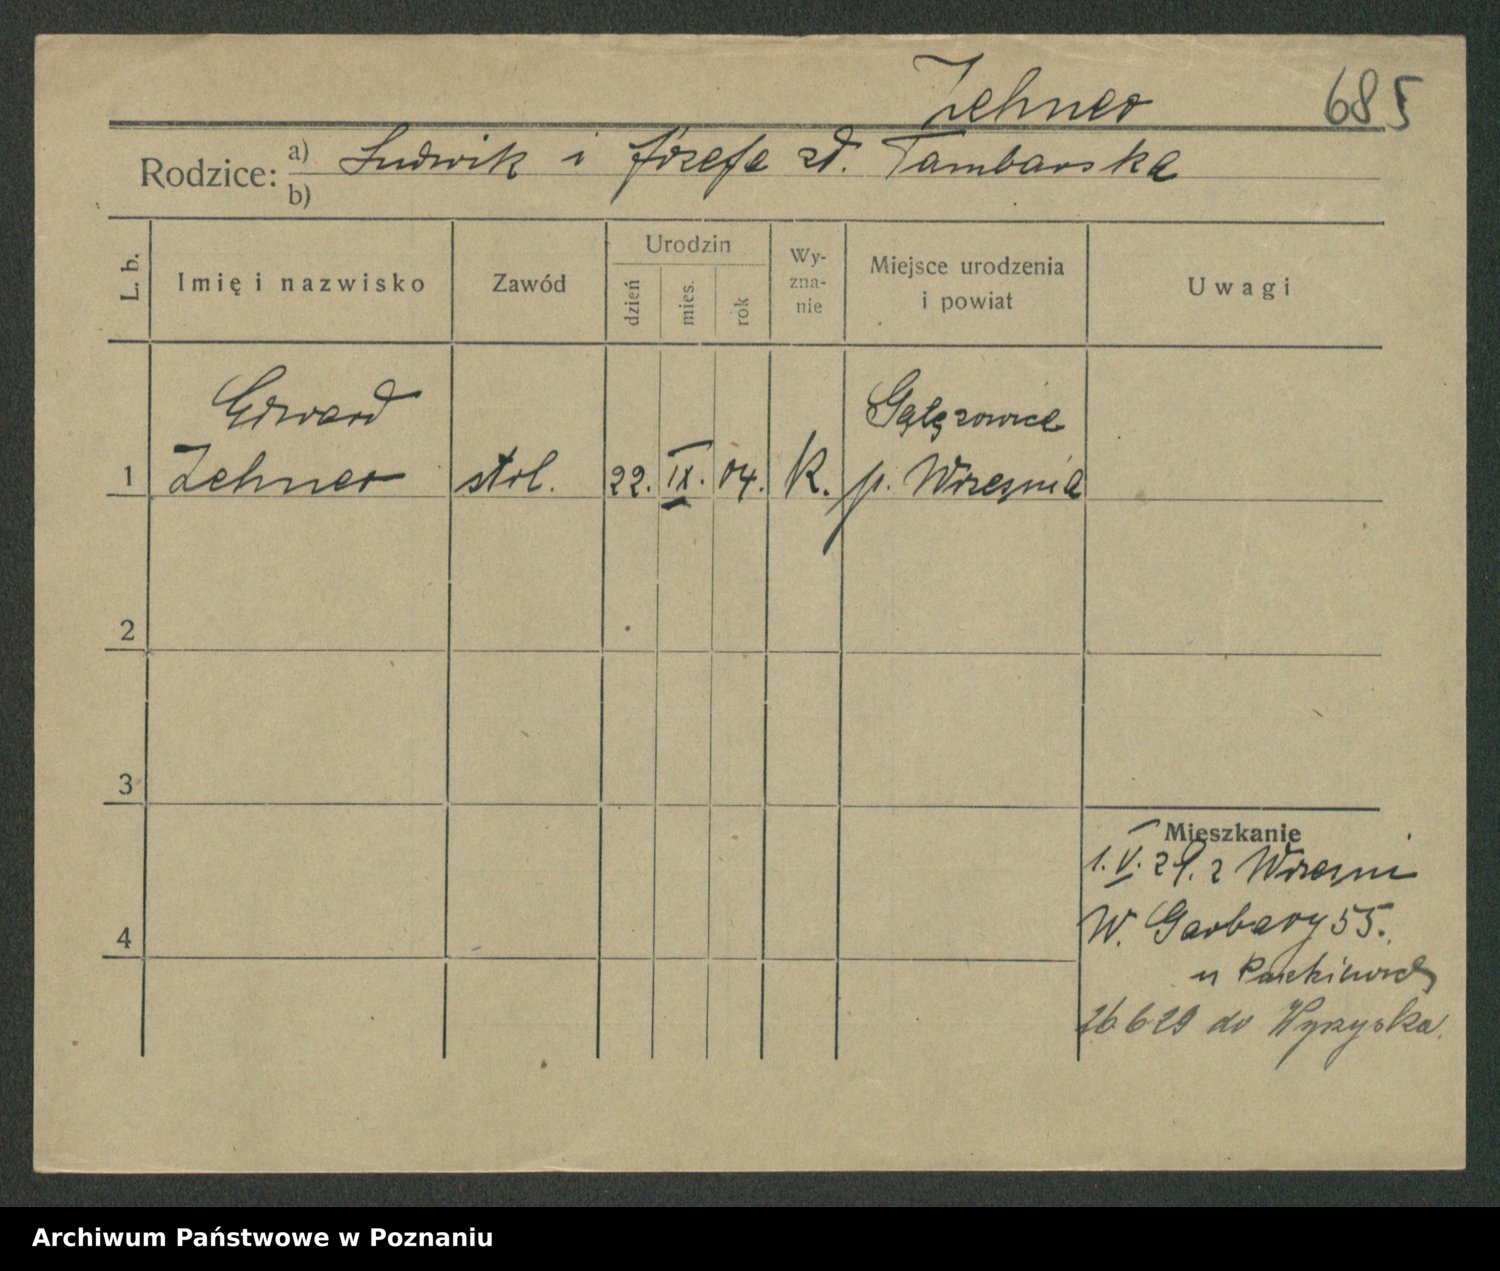 Zehner
685
Rodzice: a) Ludwik i Józefa zd. Tambarska
b)
L. b.
Imię i nazwisko
Zawód
Urodzin
dzień
mies.
rok
Wy-
zna-
nie
Miejsce urodzenia
i powiat
Uwagi
Edward
Gałęzowice
1 Zehner stol. 22. IX. 04. k. p. Września
2
3
4
Mieszkanie
1. V. 29. z Wrześni
W. Garbary 55.
u
26 6 29 do Wyrzyska
Archiwum Państwowe w Poznaniu